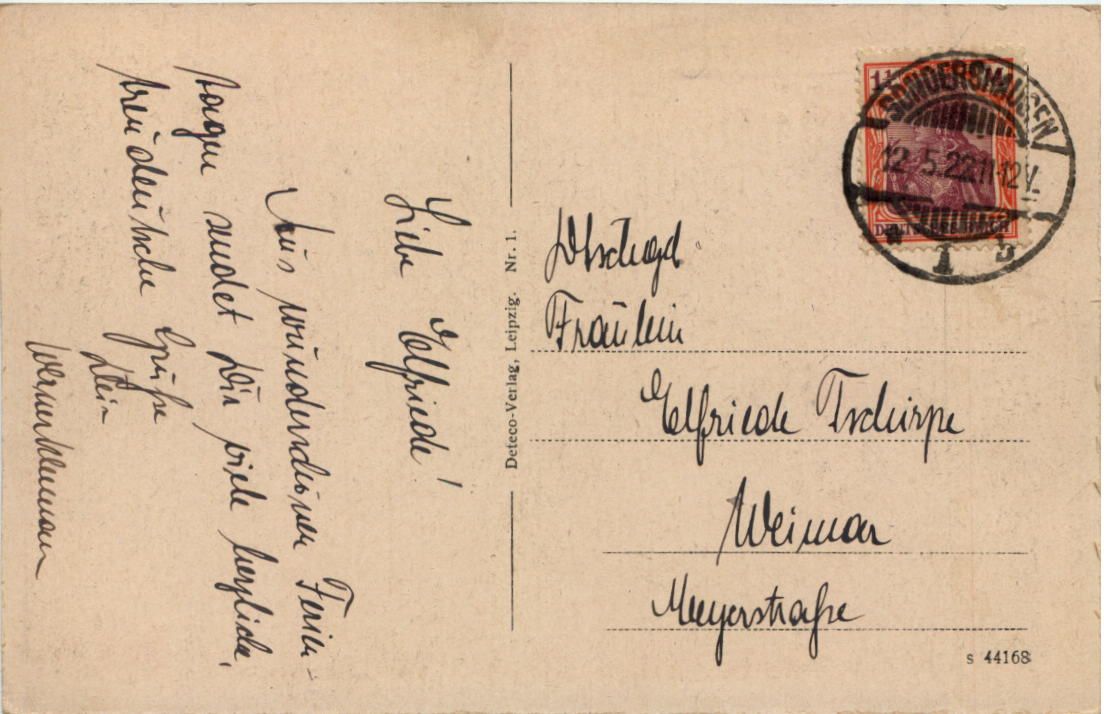 Liebe Elfriede!
Aus wunderschönen Ferien-
tagen sendet Dir viele herzliche,
treudeutsche Grüße
Dein
Werner
Deteco-Verlag, Leipzig. Nr. 1.
SONDERSHAUSEN
12.5.22.11-12V.
1 b
DEUTSCHES REICH
Fräulein
Elfriede Tschirpe
Weimar
Meyerstraße
s 44168